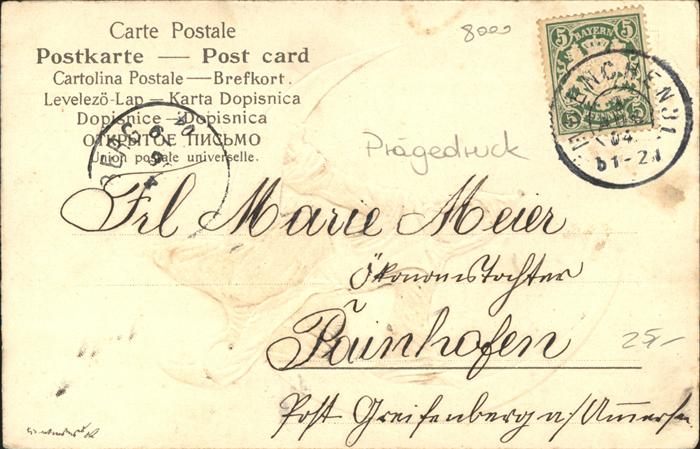 Carte Postale
Postkarte — Post card
Cartolina Postale — Brefkort.
Levelező-Lap — Karta Dopisnica
Dopisnice — Dopisnica
ОТКРЫТОЕ ПИСЬМО
Union postale universelle.
8000
5 BAYERN 5
5 PFENNIG 5
04
Prägedruck
Frl Marie Meier
Ökonomstochter
Painhofen
25,-
Post Greifenberg a/Ammersee